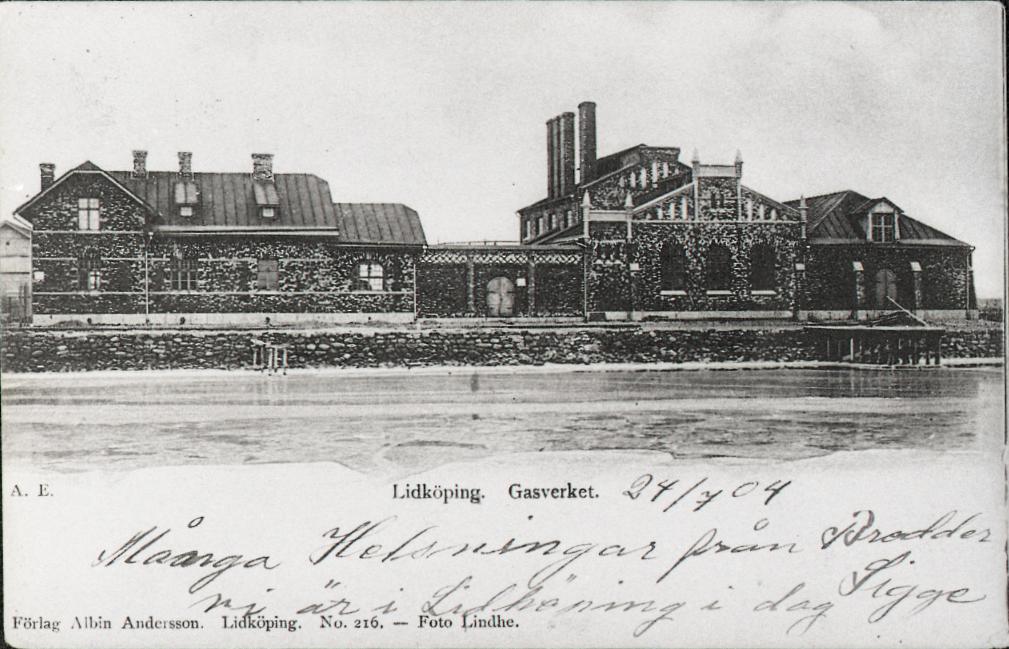 A. E.
Lidköping. Gasverket. 24/7 04
Många Helsningar från Brodder
Sigge
vi är i Lidköping i dag
Förlag Albin Andersson. Lidköping. No. 216. — Foto Lindhe.